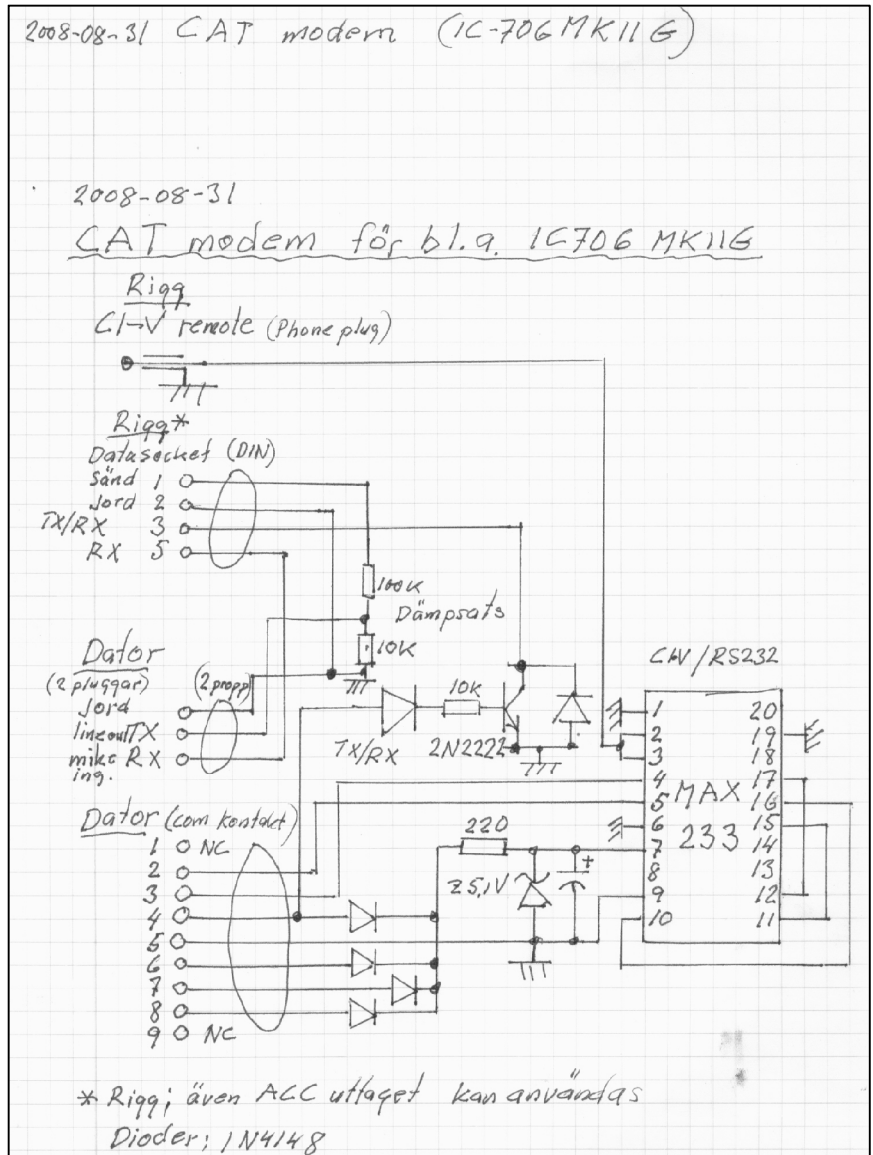 2008-08-31 CAT modem (IC-706MKIIG)
2008-08-31
CAT modem för bl.a. IC706 MKIIG
Rigg
CI-V remote (Phone plug)
Rigg*
Datasocket (DIN)
Sänd 1
Jord 2
TX/RX 3
RX 5
100K
Dämpsats
10K
Dator
(2 pluggar) (2 propp)
Jord
lineout TX
mike RX
ing.
10K
TX/RX 2N2222
CIV/RS232
1 20
2 19
3 18
4 17
5 MAX 16
6 15
7 233 14
8 13
9 12
10 11
Dator (com kontakt)
1 NC
2
3
4
5
6
7
8
9 NC
220
Z5,1V
+
* Rigg; även ACC uttaget kan användas
Dioder; 1N4148